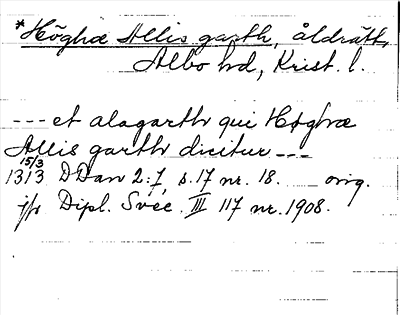 *Höghæ Allis garth, åldräth,
Albo hd, Krist. l.
--- et alagarth qui Høghæ
Allis garth dicitur ---
15/3
1313 DDan 2:7, s. 17 nr. 18. orig.
jfr Dipl. Svec. III 117 nr. 1908.